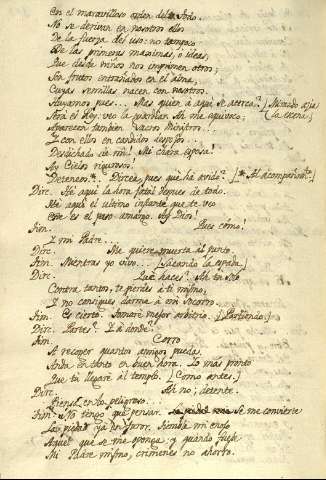 En el maravilloso orden del Todo.
No se derivan en nosotros ellos
De la fuerza del uso: no tampoco
De las primeras maximas, o ideas,
Que desde niños nos imprimen otros;
Son frutos entrañados en el alma,
Cuyas semillas nacen con nosotros.
Huyamos pues... Mas quien à aqui se acerca? [Mirando azia
Será el Rey: veo la guardia: No me equivoco; (la escena)
Aparecen tambien Sacros Ministros..!
Y con ellos en candidos despojos...
Desdichado de mi! Mi chara Esposa!
Ah Cielos rigurosos!
Deteneos.* Dircea, pues què hà avido? [* Al acompañamto.
Dirc. Hè aqui la hora fatal despues de todo.
Hè aqui el ultimo instante que te veo
Este es el paso amargo. Ay Dios!
Tim. Pues còmo!
Y mi Padre...
Dirc. Me quiere muerta al punto.
Tim. Mientras yo vivo... [Sacando la espada]
Dirc. Què haces? Ah tu solo
Contra tantos, te pierdes à ti mismo,
Y no consigues darme à mi socorro.
Tim. Es cierto. Tomarè mejor arbitrio. [Partiendo]
Dirc. Partes? Y à donde?
Tim. Corro
A recoger quantos amigos pueda.
Anda en tanto en buen hora. Lo mas pronto
Que tu llegarè al templo. [Como antes.]
Dirc. Ah no; detente.
Piensa en lo peligroso.
Tim. No tengo que pensar. Se me convierte
La piedad ya en furor. Tiemble mi enojo
Aquel que se me oponga; y quando fuese
Mi Padre mismo, crimenes no ahorro.